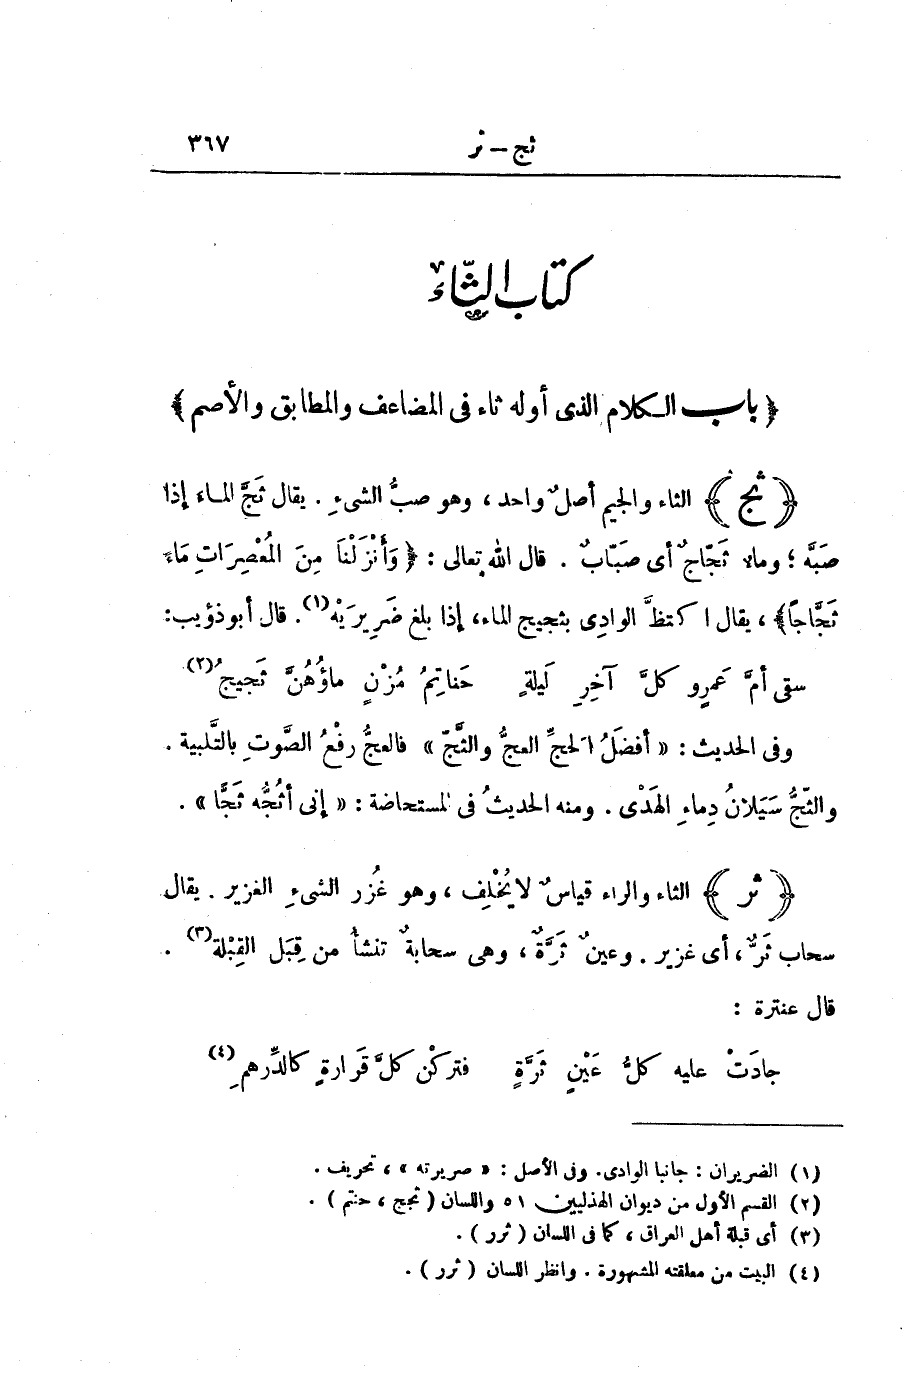 ثج – ثر ٣٦٧
كتاب الثاء
﴿ باب الكلام الذى أوله ثاء فى المضاعف والمطابق والأصم ﴾
﴿ ثج ﴾ الثاء والجيم أصلٌ واحد ، وهو صبُّ الشىءِ . يقال ثَجَّ الماء إذا
صَبَّه ؛ وماء ثَجّاجٌ أى صَبّابٌ . قال الله تعالى : ﴿ وَأَنْزَلْنَا مِنَ الْمُعْصِرَاتِ مَاءً
ثَجَّاجًا ﴾ ، يقال اكتظَّ الوادِى بثجيج الماء، إذا بلغ ضَرِيرَيْه(١). قال أبو ذؤيب:
سقى أمَّ عَمرٍو كلَّ آخِرِ لَيلةٍ حَناتِمُ مُزْنٍ ماؤُهُنَّ ثَجيجُ(٢)
وفى الحديث : « أفضَلُ الحجِّ العجُّ والثَّجّ » فالعجُّ رفْعُ الصَّوتِ بالتَّلبية .
والثّجُّ سَيَلانُ دِماءِ الهَدْى . ومنه الحديثُ فى المستحاضة : « إنى أثُجُّه ثَجًّا » .
﴿ ثر ﴾ الثاء والراء قياسٌ لا يُخْلِف ، وهو غُزْر الشىءِ الغزير . يقال
سحاب ثَرٌّ ، أى غزير . وعينٌ ثَرَّةٌ ، وهى سحابةٌ تنشأُ من قِبَل القِبْلة(٣) .
قال عنترة :
جادَتْ عليه كلُّ عَيْنٍ ثَرَّةٍ فتركْن كلَّ قَرارةٍ كالدِّرهمِ(٤)
(١) الضريران : جانبا الوادى. وفى الأصل : « صريرته » ، تحريف .
(٢) القسم الأول من ديوان الهذليين ٥١ واللسان ( ثجج ، حنتم ) .
(٣) أى قبلة أهل العراق ، كما فى اللسان ( ثرر ) .
(٤) البيت من معلقته المشهورة . وانظر اللسان ( ثرر ) .